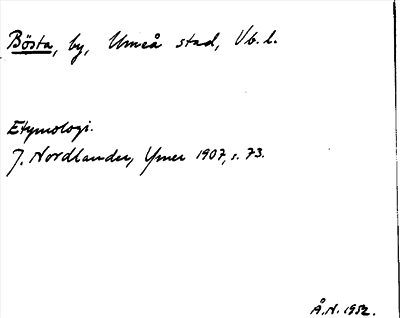 Bösta, by, Umeå stad, Vb. l.
Etymologi.
J. Nordlander, Ymer 1907, s. 73.
Å.N. 1952.